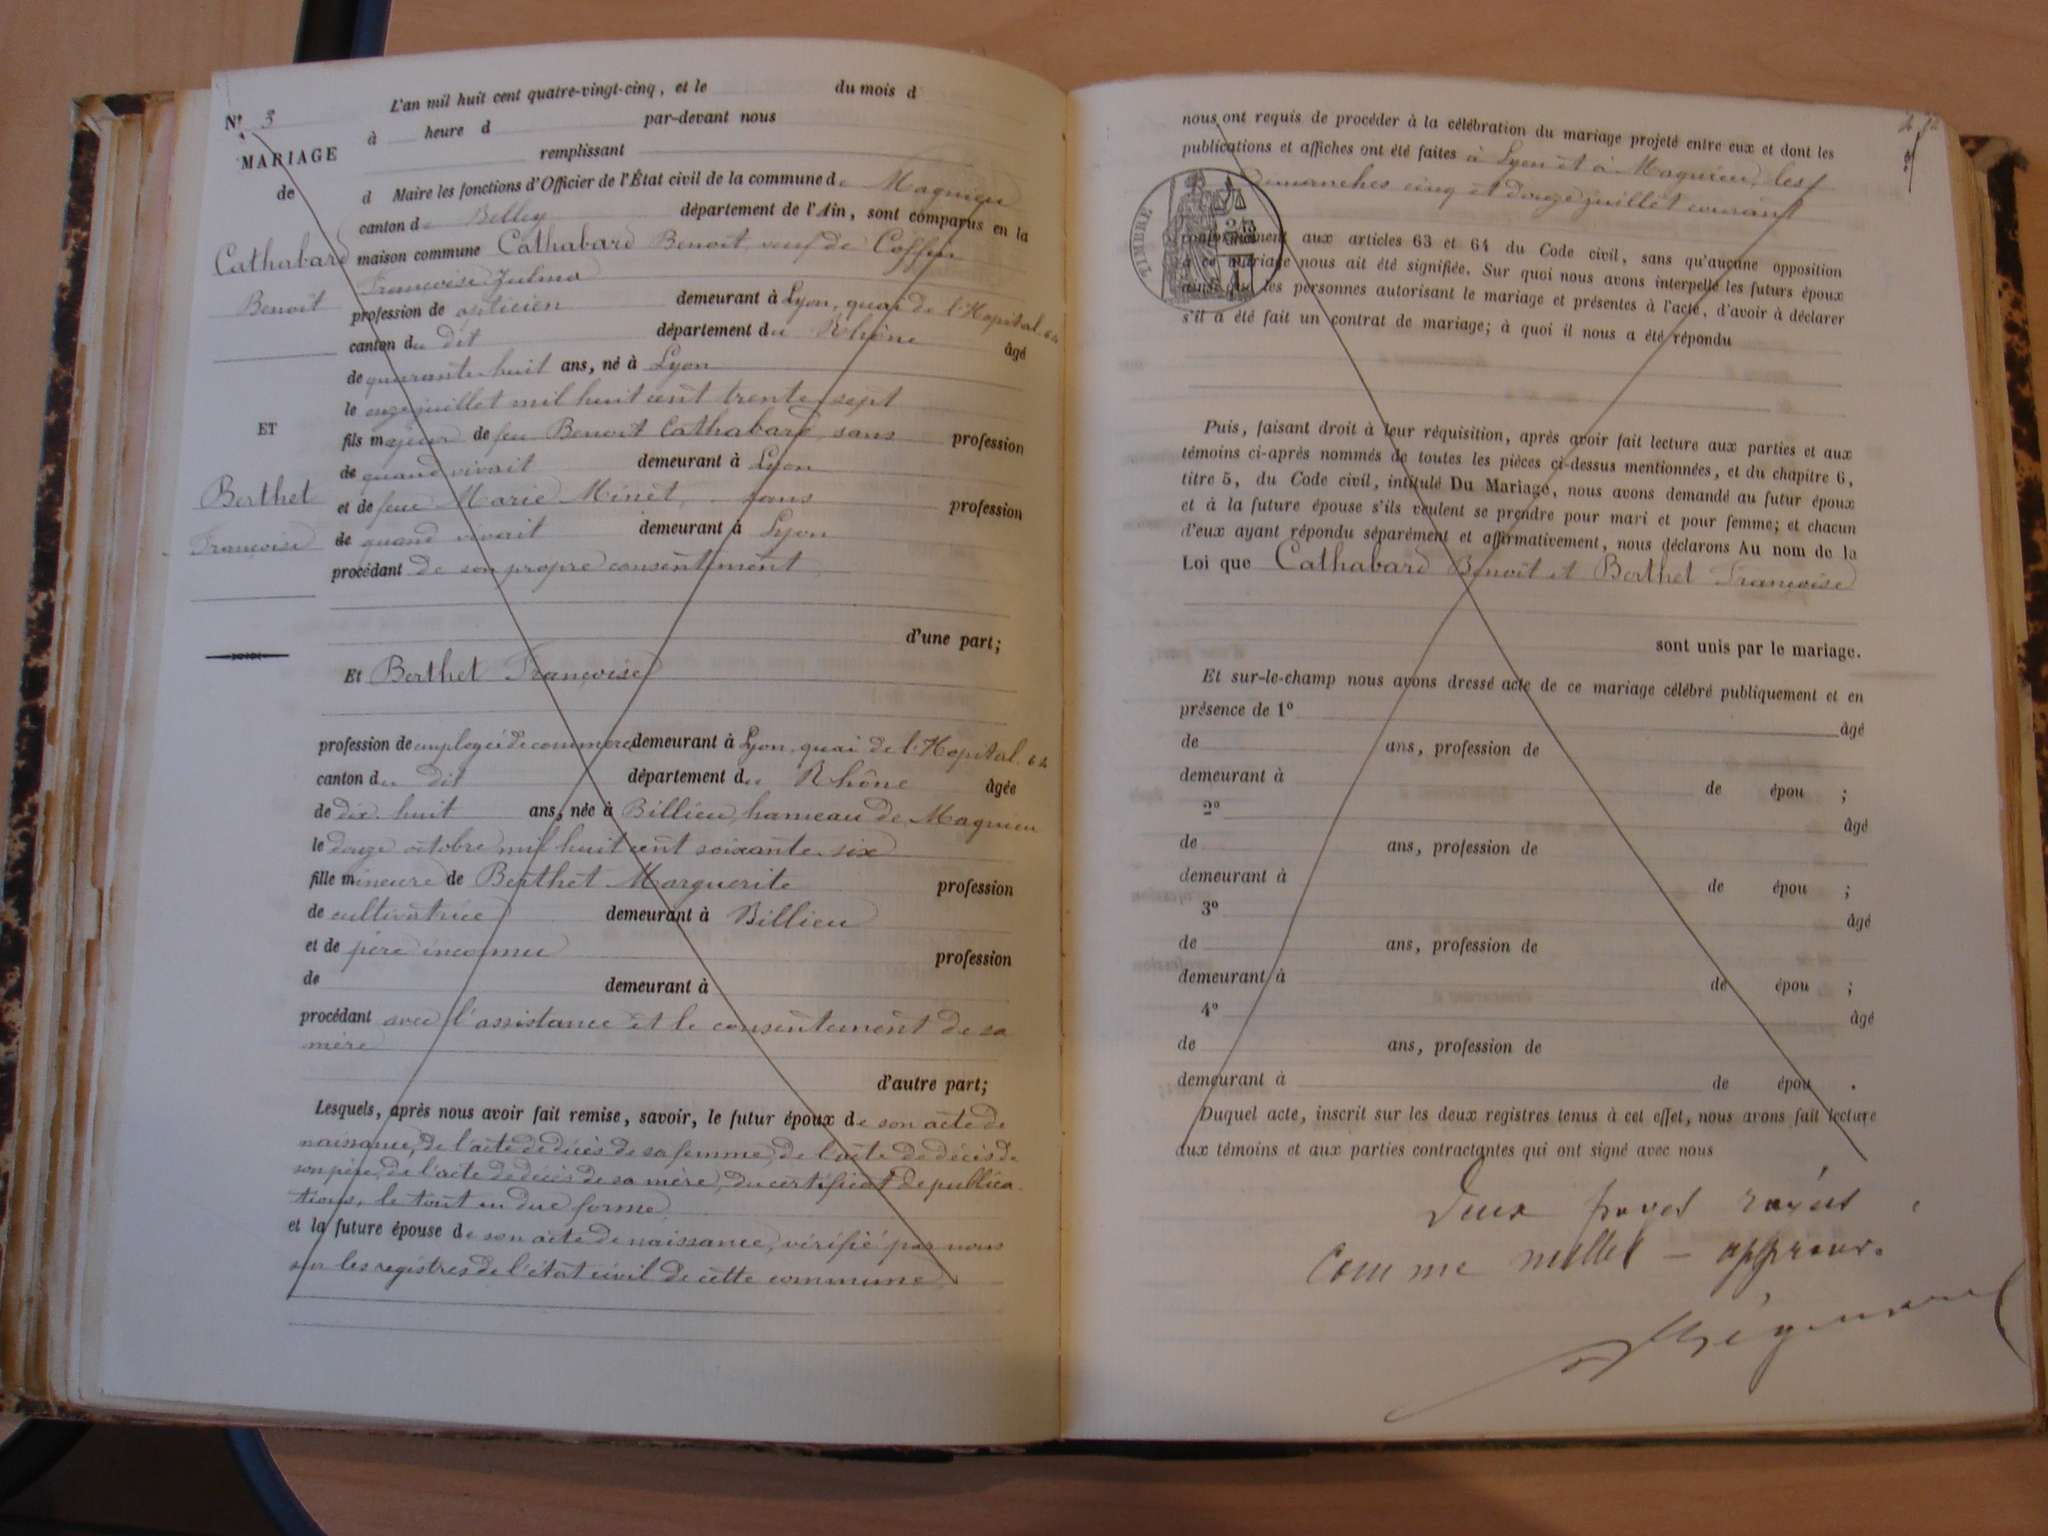 N° 3
MARIAGE
de
Cathabard
Benoit
ET
Berthet
Françoise
L'an mil huit cent quatre-vingt-cinq, et le du mois d
à heure d par-devant nous
remplissant
d Maire les fonctions d'Officier de l'État civil de la commune de Magnieu
canton de Belley département de l'Ain, sont comparus en la
maison commune Cathabard Benoit veuf de Coffin
Françoise Zulma
profession de opticien demeurant à Lyon, quai de l'Hopital 64
canton du dit département du Rhône âgé
de quarante huit ans, né à Lyon
le onze juillet mil huit cent trente sept
fils majeur de feu Benoit Cathabard, sans profession
de quand vivait demeurant à Lyon
et de feue Marie Minet, sans profession
de quand vivait demeurant à Lyon
procédant de son propre consentement
d'une part;
Et Berthet Françoise
profession de employée de commerce demeurant à Lyon, quai de l'Hopital 64
canton du dit département du Rhône âgée
de dix huit ans, née à Billieu, hameau de Magnieu
le douze octobre mil huit cent soixante six
fille mineure de Berthet Marguerite profession
de cultivatrice demeurant à Billieu
et de père inconnu profession
de demeurant à
procédant avec l'assistance et le consentement de sa
mère
d'autre part;
Lesquels, après nous avoir fait remise, savoir, le futur époux de son acte de
naissance, de l'acte de décès de sa femme, de l'acte de décès de
son père, de l'acte de décès de sa mère, du certificat de publica-
tions, le tout en due forme
et la future épouse de son acte de naissance, vérifié par nous
sur les registres de l'état civil de cette commune
nous ont requis de procéder à la célébration du mariage projeté entre eux et dont les
publications et affiches ont été faites à Lyon et à Magnieu, les
dimanches cinq et douze juillet courant
TIMBRE
conformément aux articles 63 et 64 du Code civil, sans qu'aucune opposition
à ce mariage nous ait été signifiée. Sur quoi nous avons interpellé les futurs époux
ainsi que les personnes autorisant le mariage et présentes à l'acte, d'avoir à déclarer
s'il a été fait un contrat de mariage; à quoi il nous a été répondu
Puis, faisant droit à leur réquisition, après avoir fait lecture aux parties et aux
témoins ci-après nommés de toutes les pièces ci-dessus mentionnées, et du chapitre 6,
titre 5, du Code civil, intitulé Du Mariage, nous avons demandé au futur époux
et à la future épouse s'ils veulent se prendre pour mari et pour femme; et chacun
d'eux ayant répondu séparément et affirmativement, nous déclarons Au nom de la
Loi que Cathabard Benoit et Berthet Françoise
sont unis par le mariage.
Et sur-le-champ nous avons dressé acte de ce mariage célébré publiquement et en
présence de 1° âgé
de ans, profession de
demeurant à de épou ;
2° âgé
de ans, profession de
demeurant à de épou ;
3° âgé
de ans, profession de
demeurant à de épou ;
4° âgé
de ans, profession de
demeurant à de épou .
Duquel acte, inscrit sur les deux registres tenus à cet effet, nous avons fait lecture
aux témoins et aux parties contractantes qui ont signé avec nous
Deux pages rayées
comme nulles –